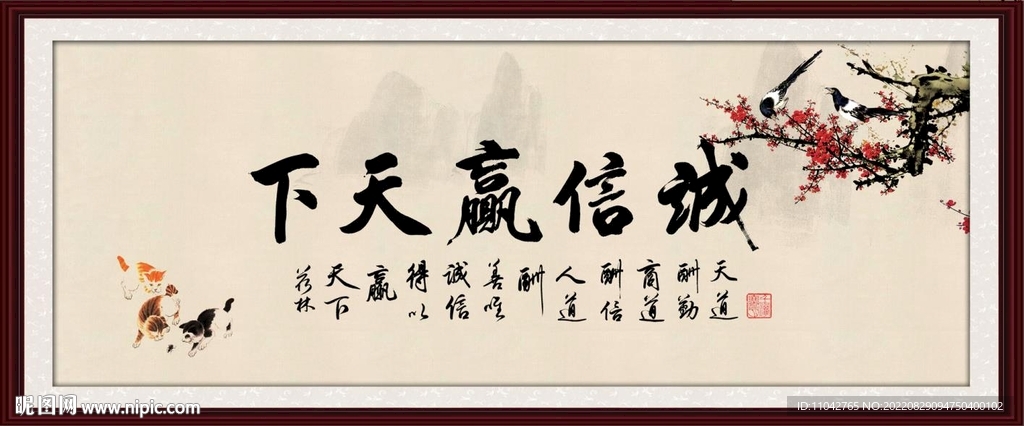 誠信贏天下
天道
酬勤
商道
酬信
人道
酬
善唯
誠信
得以
贏
天下
昵图网 www.nipic.com
ID:11042765 NO:20220829094750400102